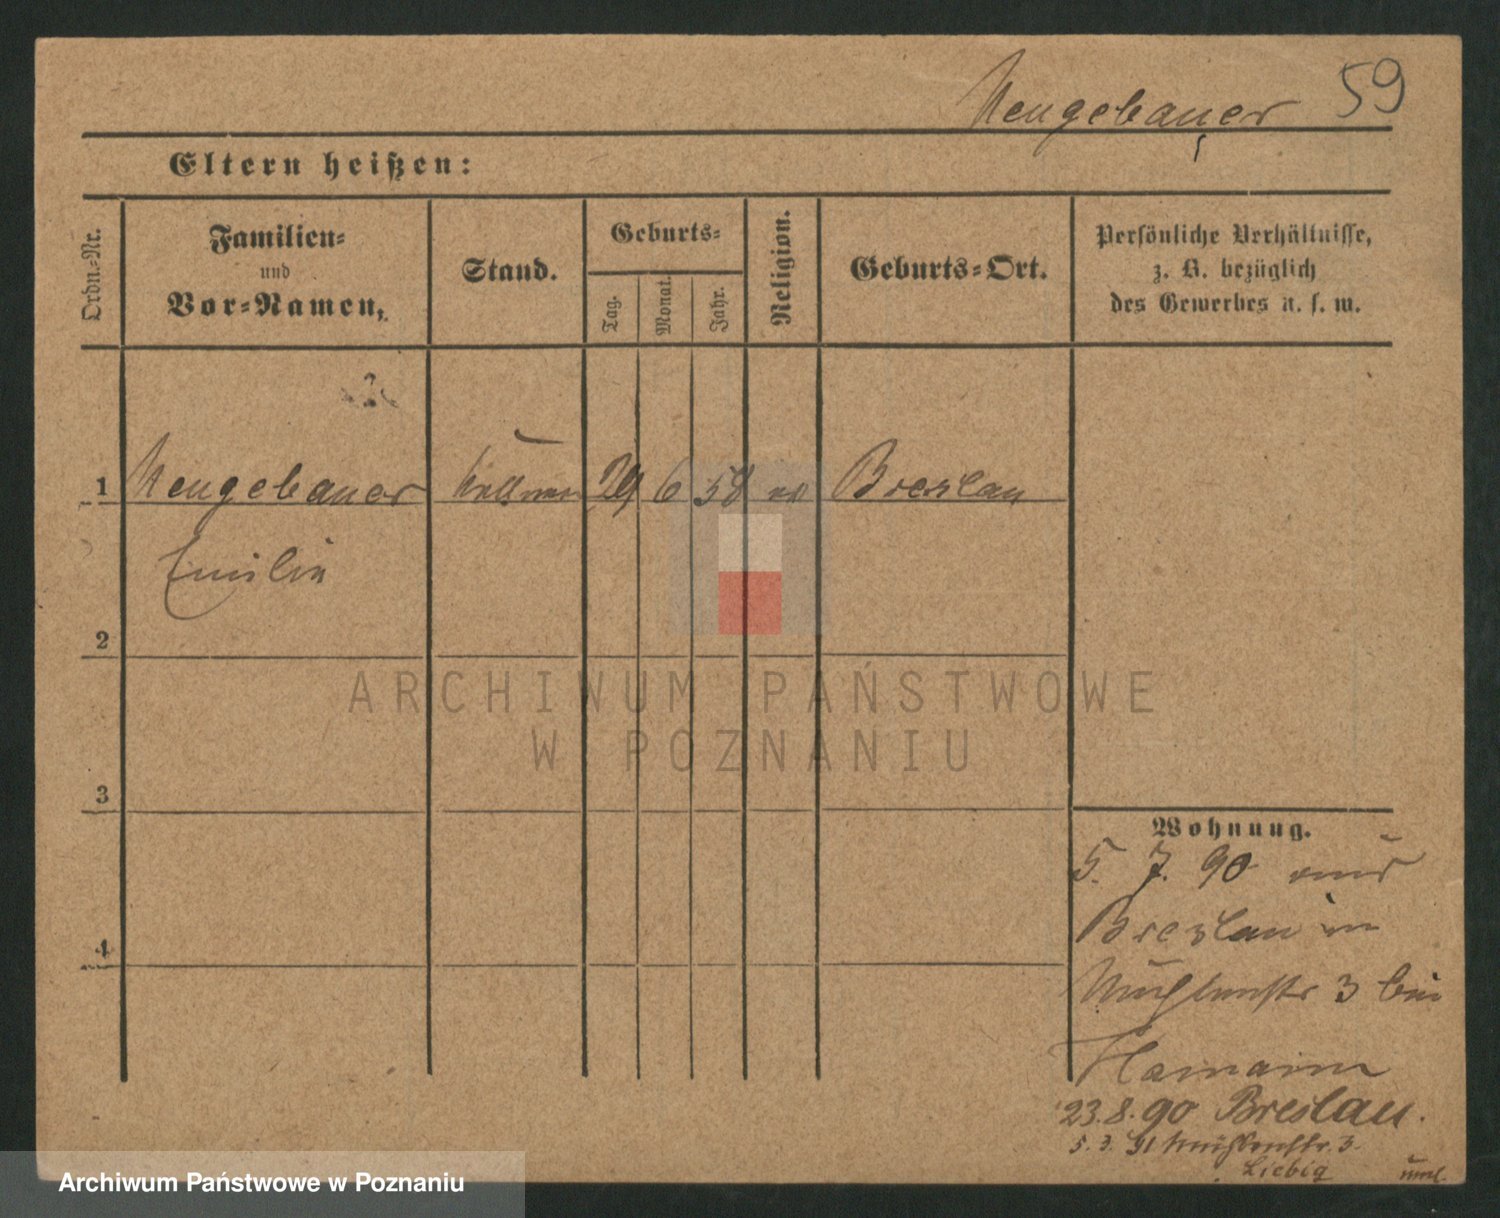 Neugebauer 59
Eltern heißen:
Ordn.-Nr.
Familien-
und
Vor-Namen,
Stand.
Geburts-
Tag.
Monat.
Jahr.
Religion.
Geburts-Ort.
Persönliche Verhältnisse,
z. B. bezüglich
des Gewerbes u. s. w.
1 Neugebauer 29 6 58 Breslau
Emilie
2
3
4
Wohnung.
5. 7. 90 aus
Breslau in
Mühlenstr 3 bei
Hamann
23.8.90 Breslau.
5. 3. 91 Mühlenstr. 3
Liebig
ARCHIWUM PAŃSTWOWE
W POZNANIU
Archiwum Państwowe w Poznaniu